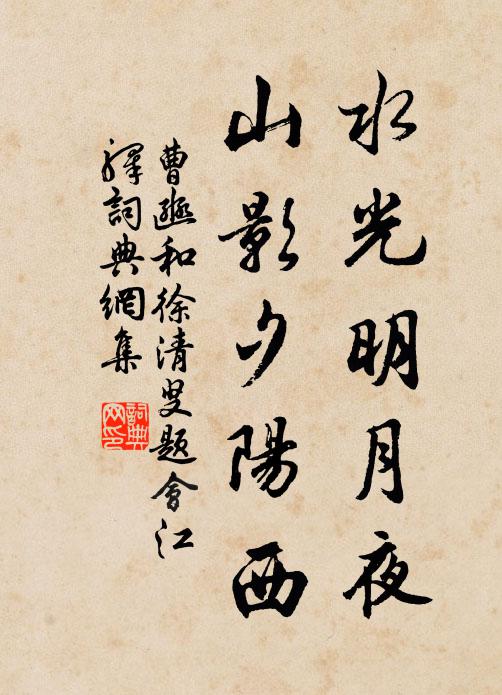 水光明月夜
山影夕陽西
曹邍和徐清叟題會江
驛詞典網集
詞典
网印